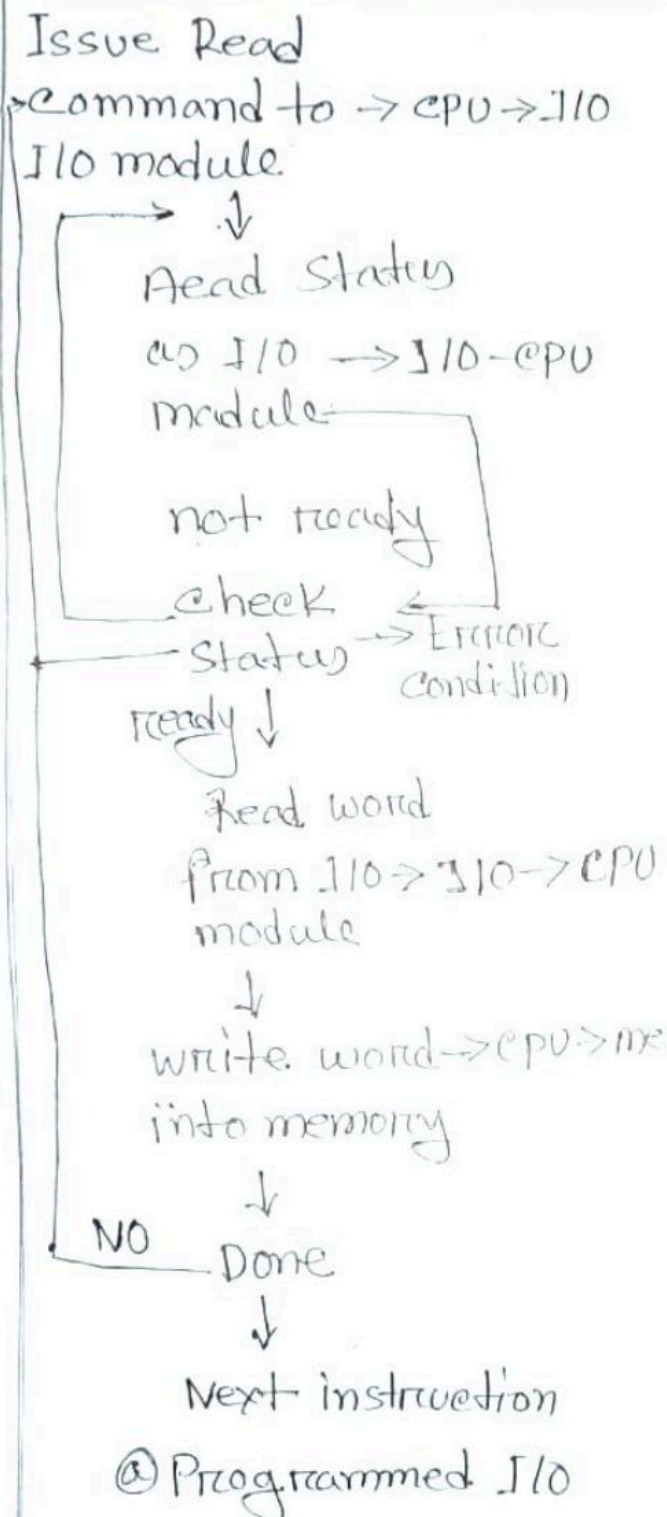 Issue Read
Command to → CPU → I/O
I/O module
↓
Read Status
as I/O → I/O - CPU
module
not ready
Check
Status → Error
condition
ready ↓
Read word
from I/O → I/O → CPU
module
↓
write word → CPU → me
into memory
↓
NO Done
↓
Next instruction
ⓐ Programmed I/O